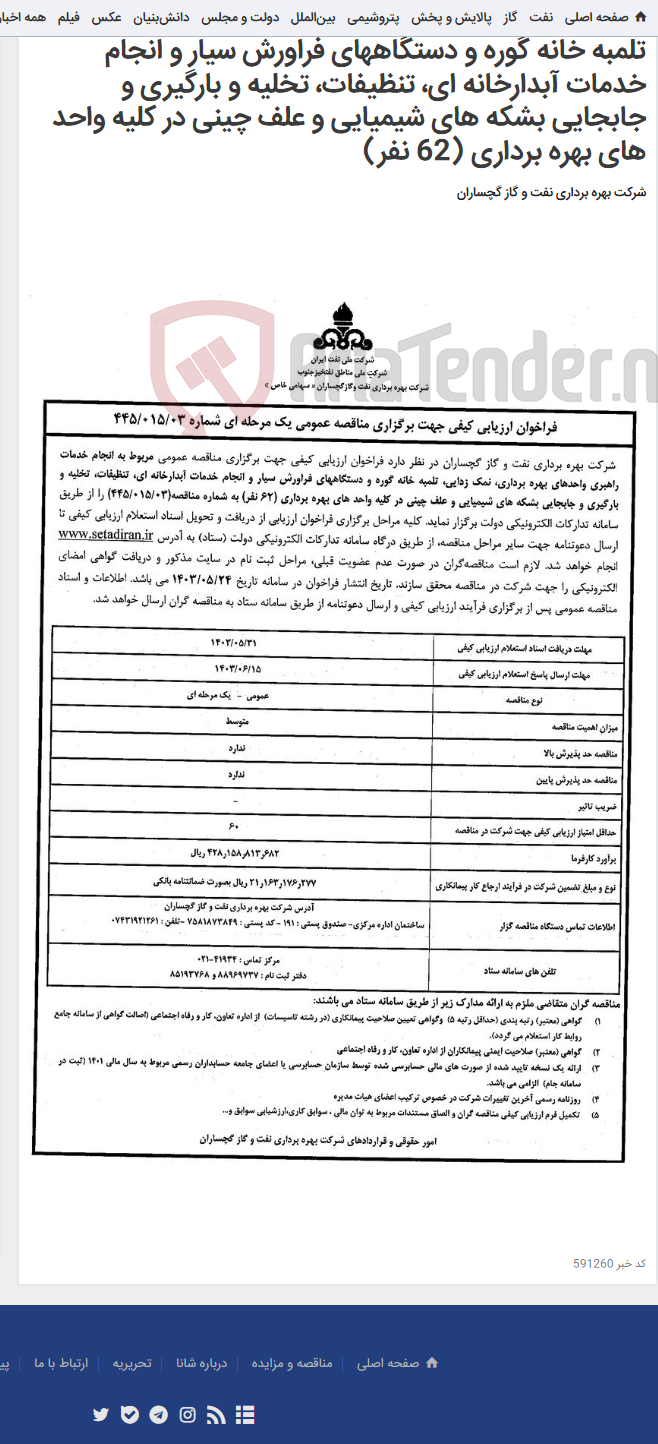 صفحه اصلی نفت گاز پالایش و پخش پتروشیمی بین‌الملل دولت و مجلس دانش‌بنیان عکس فیلم همه اخبار
تلمبه خانه گوره و دستگاههای فراورش سیار و انجام
خدمات آبدارخانه ای، تنظیفات، تخلیه و بارگیری و
جابجایی بشکه های شیمیایی و علف چینی در کلیه واحد
های بهره برداری (62 نفر)
شرکت بهره برداری نفت و گاز گچساران
AriaTender.n
شرکت ملی نفت ایران
شرکت ملی مناطق نفتخیزجنوب
شرکت بهره برداری نفت وگازگچساران « سهامی خاص »
فراخوان ارزیابی کیفی جهت برگزاری مناقصه عمومی یک مرحله ای شماره ۴۴۵/۰۱۵/۰۳
شرکت بهره برداری نفت و گاز گچساران در نظر دارد فراخوان ارزیابی کیفی جهت برگزاری مناقصه عمومی مربوط به انجام خدمات
راهبری واحدهای بهره برداری، نمک زدایی، تلمبه خانه گوره و دستگاههای فراورش سیار و انجام خدمات آبدارخانه ای، تنظیفات، تخلیه و
بارگیری و جابجایی بشکه های شیمیایی و علف چینی در کلیه واحد های بهره برداری (۶۲ نفر) به شماره مناقصه(۴۴۵/۰۱۵/۰۳) را از طریق
سامانه تدارکات الکترونیکی دولت برگزار نماید. کلیه مراحل برگزاری فراخوان ارزیابی از دریافت و تحویل اسناد استعلام ارزیابی کیفی تا
ارسال دعوتنامه جهت سایر مراحل مناقصه، از طریق درگاه سامانه تدارکات الکترونیکی دولت (ستاد) به آدرس www.setadiran.ir
انجام خواهد شد. لازم است مناقصه‌گران در صورت عدم عضویت قبلی، مراحل ثبت نام در سایت مذکور و دریافت گواهی امضای
الکترونیکی را جهت شرکت در مناقصه محقق سازند. تاریخ انتشار فراخوان در سامانه تاریخ ۱۴۰۳/۰۵/۲۴ می باشد. اطلاعات و اسناد
مناقصه عمومی پس از برگزاری فرآیند ارزیابی کیفی و ارسال دعوتنامه از طریق سامانه ستاد به مناقصه گران ارسال خواهد شد.
مهلت دریافت اسناد استعلام ارزیابی کیفی ۱۴۰۳/۰۵/۳۱
مهلت ارسال پاسخ استعلام ارزیابی کیفی ۱۴۰۳/۰۶/۱۵
نوع مناقصه عمومی - یک مرحله ای
میزان اهمیت مناقصه متوسط
مناقصه حد پذیرش بالا ندارد
مناقصه حد پذیرش پایین ندارد
ضریب تاثیر -
حداقل امتیاز ارزیابی کیفی جهت شرکت در مناقصه ۶۰
برآورد کارفرما ۴۲۸٫۱۵۸٫۸۱۳٫۶۸۲ ریال
نوع و مبلغ تضمین شرکت در فرآیند ارجاع کار پیمانکاری ۲۱٫۱۶۳٫۱۷۶٫۲۷۷ ریال بصورت ضمانتنامه بانکی
اطلاعات تماس دستگاه مناقصه گزار آدرس شرکت بهره برداری نفت و گاز گچساران
ساختمان اداره مرکزی- صندوق پستی : ۱۹۱ - کد پستی : ۷۵۸۱۸۷۳۸۴۹ -تلفن : ۰۷۴۳۱۹۲۱۲۶۱
تلفن های سامانه ستاد مرکز تماس : ۴۱۹۳۴-۰۲۱
دفتر ثبت نام : ۸۸۹۶۹۷۳۷ و ۸۵۱۹۳۷۶۸
مناقصه گران متقاضی ملزم به ارائه مدارک زیر از طریق سامانه ستاد می باشند:
۱) گواهی (معتبر) رتبه بندی (حداقل رتبه ۵) وگواهی تعیین صلاحیت پیمانکاری (در رشته تاسیسات) از اداره تعاون، کار و رفاه اجتماعی (اصالت گواهی از سامانه جامع
روابط کار استعلام می گردد).
۲) گواهی (معتبر) صلاحیت ایمنی پیمانکاران از اداره تعاون، کار و رفاه اجتماعی
۳) ارائه یک نسخه تایید شده از صورت های مالی حسابرسی شده توسط سازمان حسابرسی یا اعضای جامعه حسابداران رسمی مربوط به سال مالی ۱۴۰۱ (ثبت در
سامانه جام) الزامی می باشد.
۴) روزنامه رسمی آخرین تغییرات شرکت در خصوص ترکیب اعضای هیات مدیره
۵) تکمیل فرم ارزیابی کیفی مناقصه گران و الصاق مستندات مربوط به توان مالی ، سوابق کاری،ارزشیابی سوابق و...
امور حقوقی و قراردادهای شرکت بهره برداری نفت و گاز گچساران
کد خبر 591260
صفحه اصلی مناقصه و مزایده درباره شانا تحریریه ارتباط با ما پی